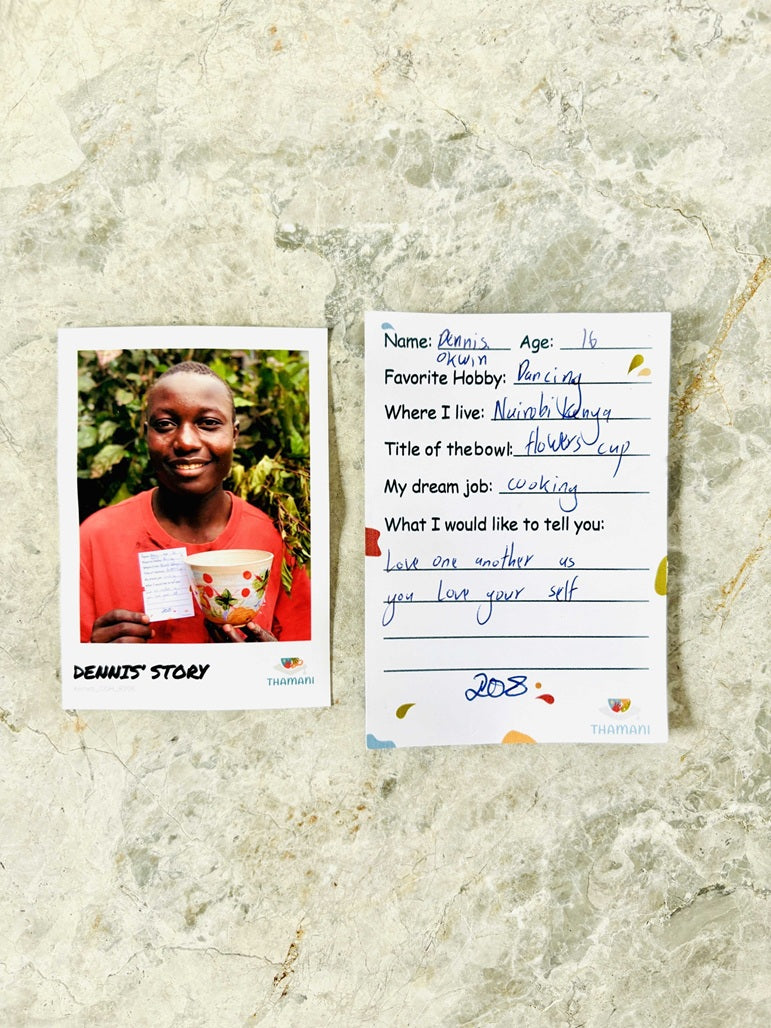 DENNIS' STORY
THAMANI
Name: Dennis Age: 16
Okwin
Favorite Hobby: Dancing
Where I live: Nairobi Kenya
Title of the bowl: flowers cup
My dream job: cooking
What I would like to tell you:
Love one another us
you Love your self
208
THAMANI